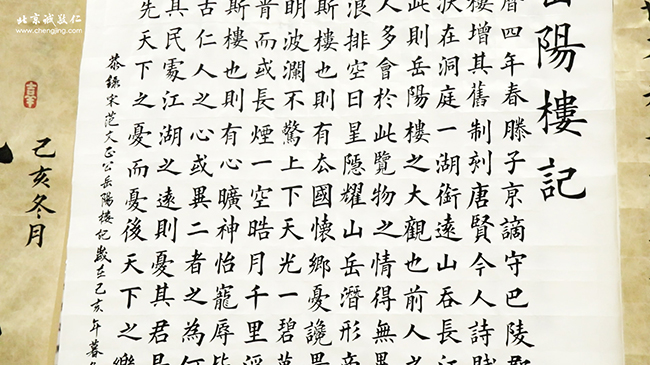 北京诚敬仁
www.chengjing.com
岳陽樓記
曆四年春滕子京謫守巴陵郡
樓增其舊制刻唐賢今人詩賦
狀在洞庭一湖銜遠山吞長江
此則岳陽樓之大觀也前人之
人多會於此覽物之情得無異
浪排空日星隱耀山岳潛形商
斯樓也則有去國懷鄉憂讒畏
明波瀾不驚上下天光一碧萬
青而或長煙一空皓月千里浮
斯樓也則有心曠神怡寵辱皆
古仁人之心或異二者之為何
其民處江湖之遠則憂其君是
先天下之憂而憂後天下之樂
恭錄宋范文正公岳陽樓記歲在己亥年暮
己亥冬月